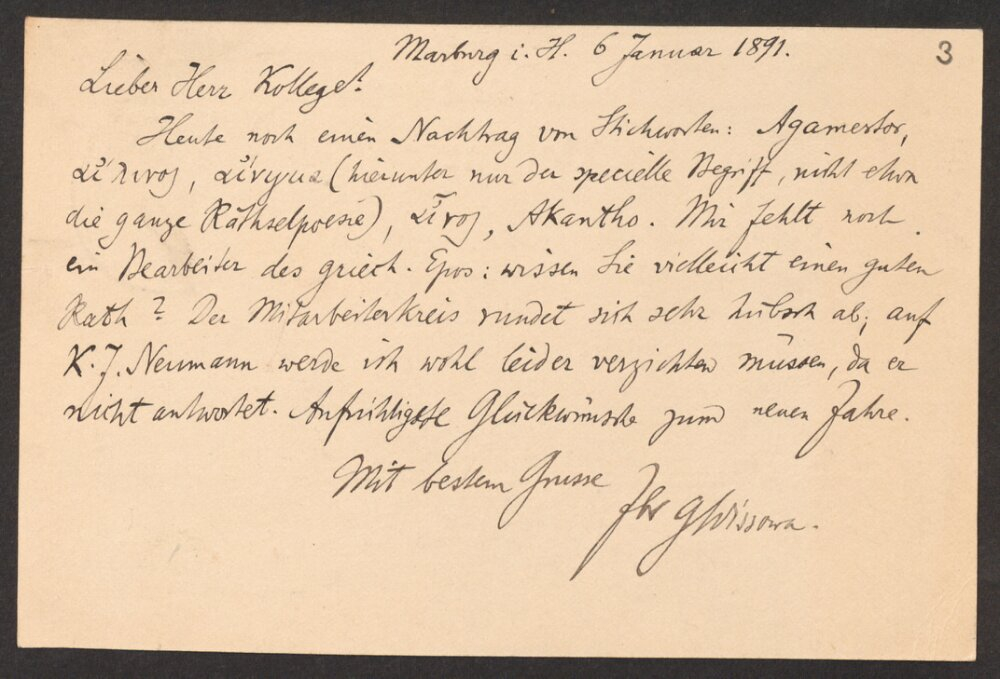 3
Marburg i. H. 6 Januar 1891.
Lieber Herr Kollege!
Heute noch einen Nachtrag von Stichworten: Agamestor,
αἴλινος, αἴνιγμα (hierunter nur der specielle Begriff, nicht etwa
die ganze Räthselpoesie), αἶνος, Akantho. Mir fehlt noch
ein Bearbeiter des griech. Epos: wissen Sie vielleicht einen guten
Rath? Der Mitarbeiterkreis rundet sich sehr hübsch ab; auf
K. J. Neumann werde ich wohl leider verzichten müssen, da er
nicht antwortet. Aufrichtigste Glückwünsche zum neuen Jahre.
Mit bestem Grusse
Ihr GWissowa.